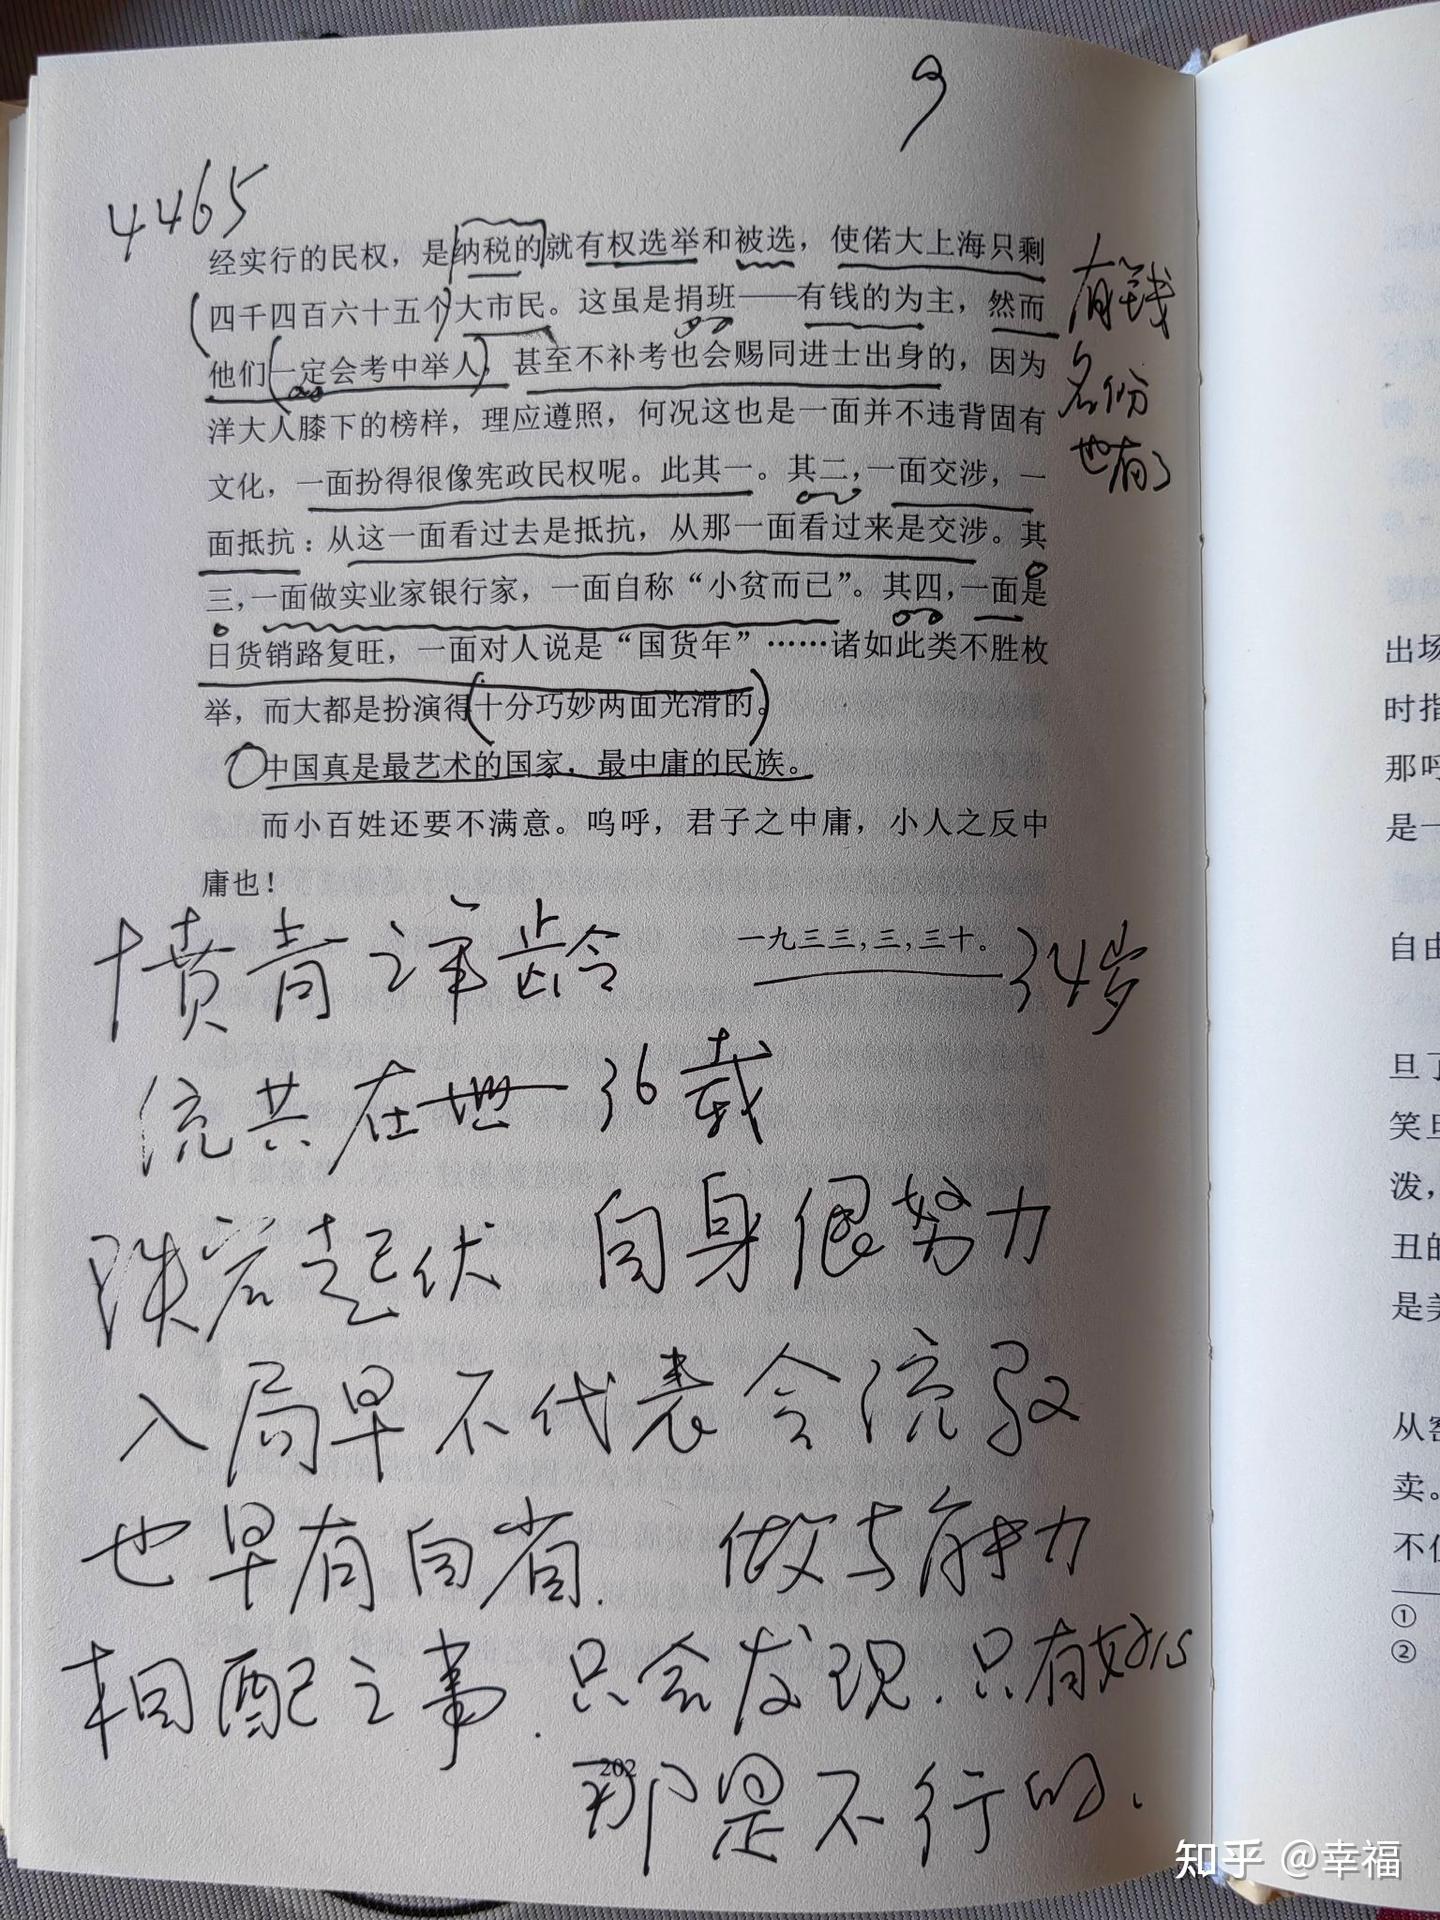 4465
经实行的民权，是纳税的就有权选举和被选，使偌大上海只剩
四千四百六十五个大市民。这虽是捐班——有钱的为主，然而
他们一定会考中举人，甚至不补考也会赐同进士出身的，因为
洋大人膝下的榜样，理应遵照，何况这也是一面并不违背固有
文化，一面扮得很像宪政民权呢。此其一。其二，一面交涉，一
面抵抗：从这一面看过去是抵抗，从那一面看过来是交涉。其
三，一面做实业家银行家，一面自称“小贫而已”。其四，一面是
日货销路复旺，一面对人说是“国货年”……诸如此类不胜枚
举，而大都是扮演得十分巧妙两面光滑的。
中国真是最艺术的国家，最中庸的民族。
而小百姓还要不满意。呜呼，君子之中庸，小人之反中
庸也！
一九三三，三，三十。
有钱
名份
也有了
34岁
愤青之年龄
统共在世36载
跌宕起伏 自身很努力
入局早不代表会流
也早有自省. 做与能力
相配之事. 只会发现. 只有
那是不行的.
202
出场
时指
那呼
是一
自由
旦了
笑旦
泼，
丑的
是美
从客
卖。
不仅
①
②
知乎 @幸福